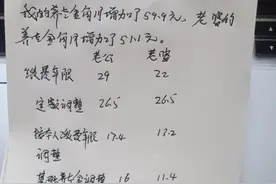 我的养老金每月增加了54.9元，老婆的
养老金每月增加了51.1元。
老公 老婆
缴费年限 29 22
定额调整 26.5 26.5
按本人缴费年限 17.4 13.2
调整
基础养老金调整 16 11.4